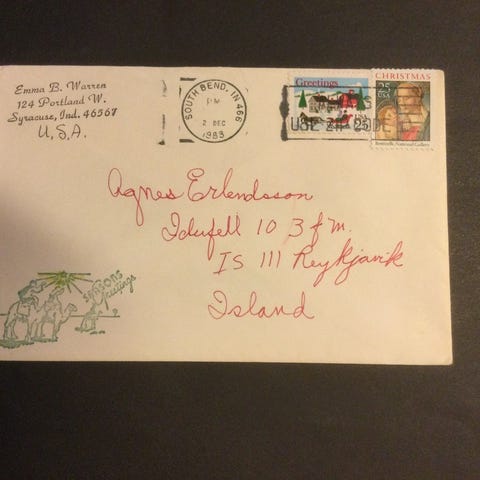 Emma B. Warren
124 Portland W.
Syracuse, Ind. 46567
U.S.A.
SOUTH BEND, IN 466
PM
2 DEC
1989
Greetings
USA 25
CHRISTMAS
25
USA
Botticelli, National Gallery
USE ZIP CODE
Agnes Erlendsson
Idufell 10 3 f m.
IS 111 Reykjavik
Island
SEASONS
Greetings